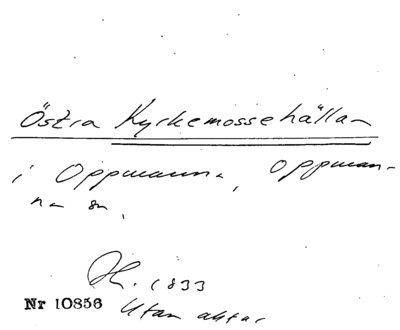 Östra Kyrkemossehällan
i Oppmanna, Oppman-
na sn.
H. 1833
Nr 10856 Utan aktar